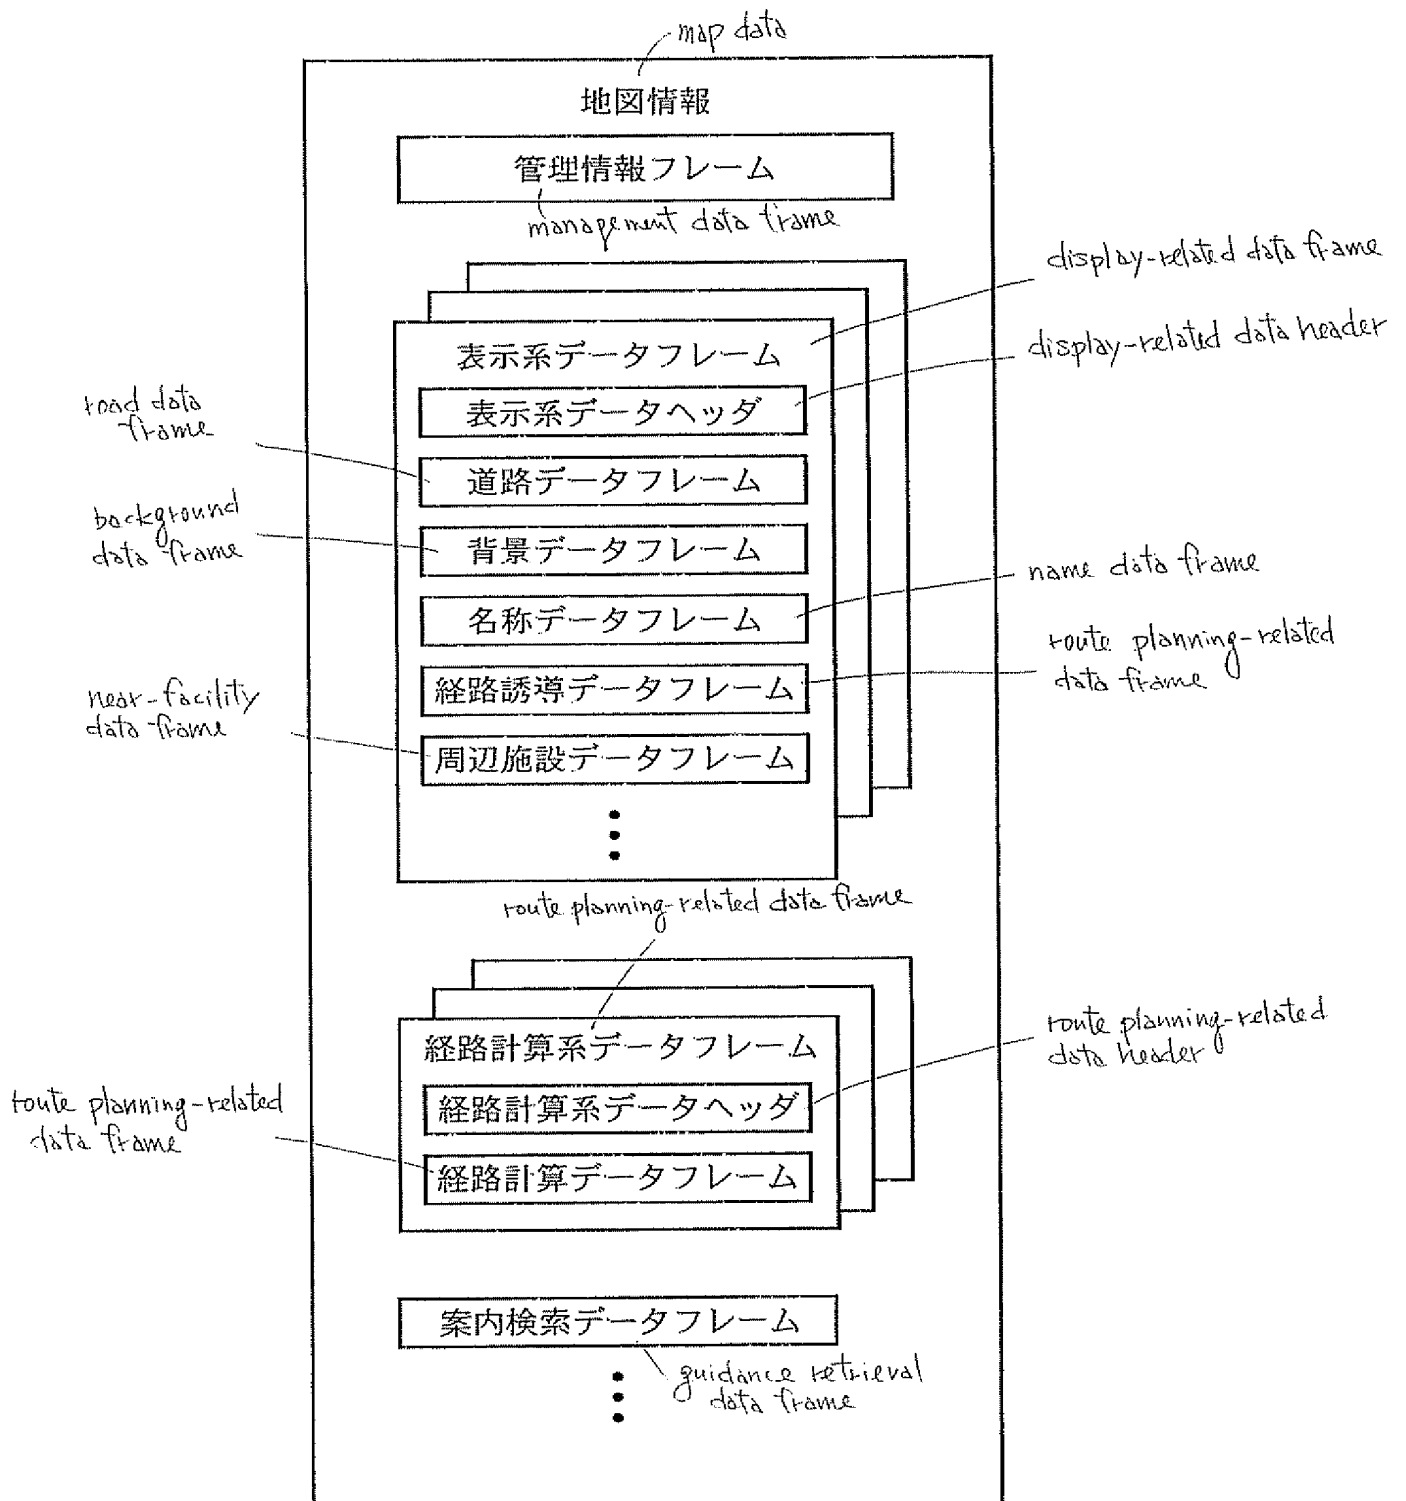 map data
地図情報
管理情報フレーム
management data frame
display-related data frame
display-related data header
表示系データフレーム
表示系データヘッダ
road data
frame
道路データフレーム
background
data frame
背景データフレーム
name data frame
名称データフレーム
route planning-related
data frame
経路誘導データフレーム
near-facility
data frame
周辺施設データフレーム
route planning-related data frame
経路計算系データフレーム
route planning-related
data header
経路計算系データヘッダ
route planning-related
data frame
経路計算データフレーム
案内検索データフレーム
guidance retrieval
data frame